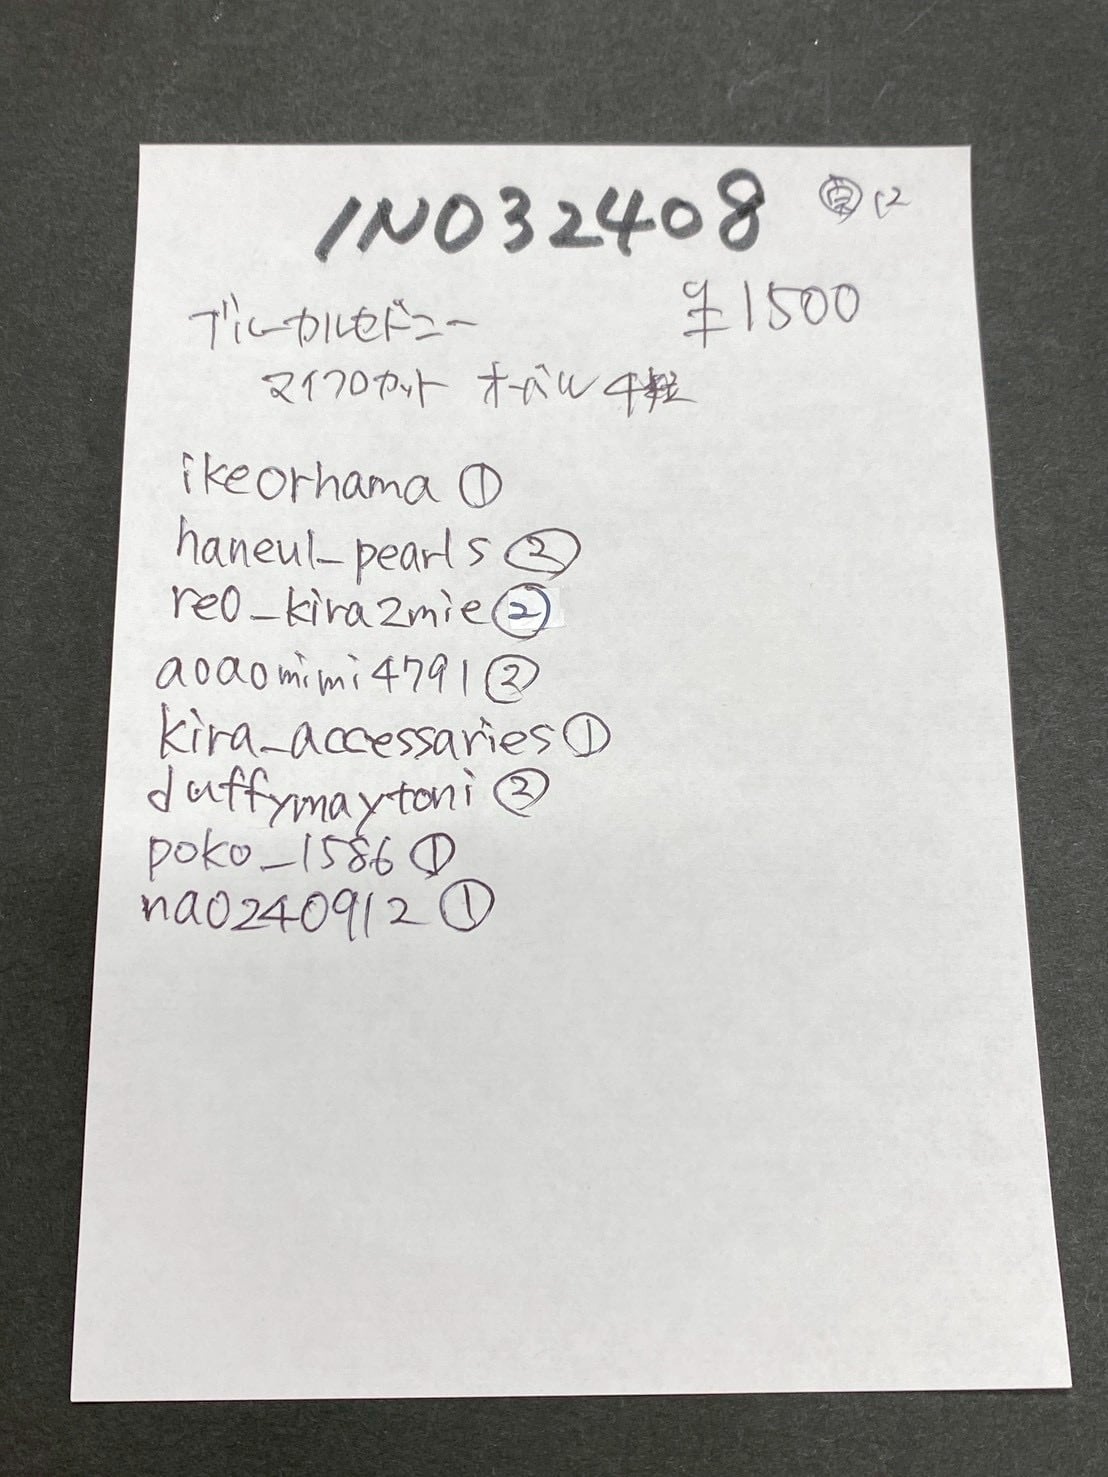 INO32408
ブルーカルセドニー ¥1500
マイクロカット オーバル 4粒
ikeorhama ①
haneul_pearls ②
reo_kira2mie ②
aoaomimi4791 ②
kira_accessaries ①
duffymaytoni ②
poko_1586 ①
nao240912 ①